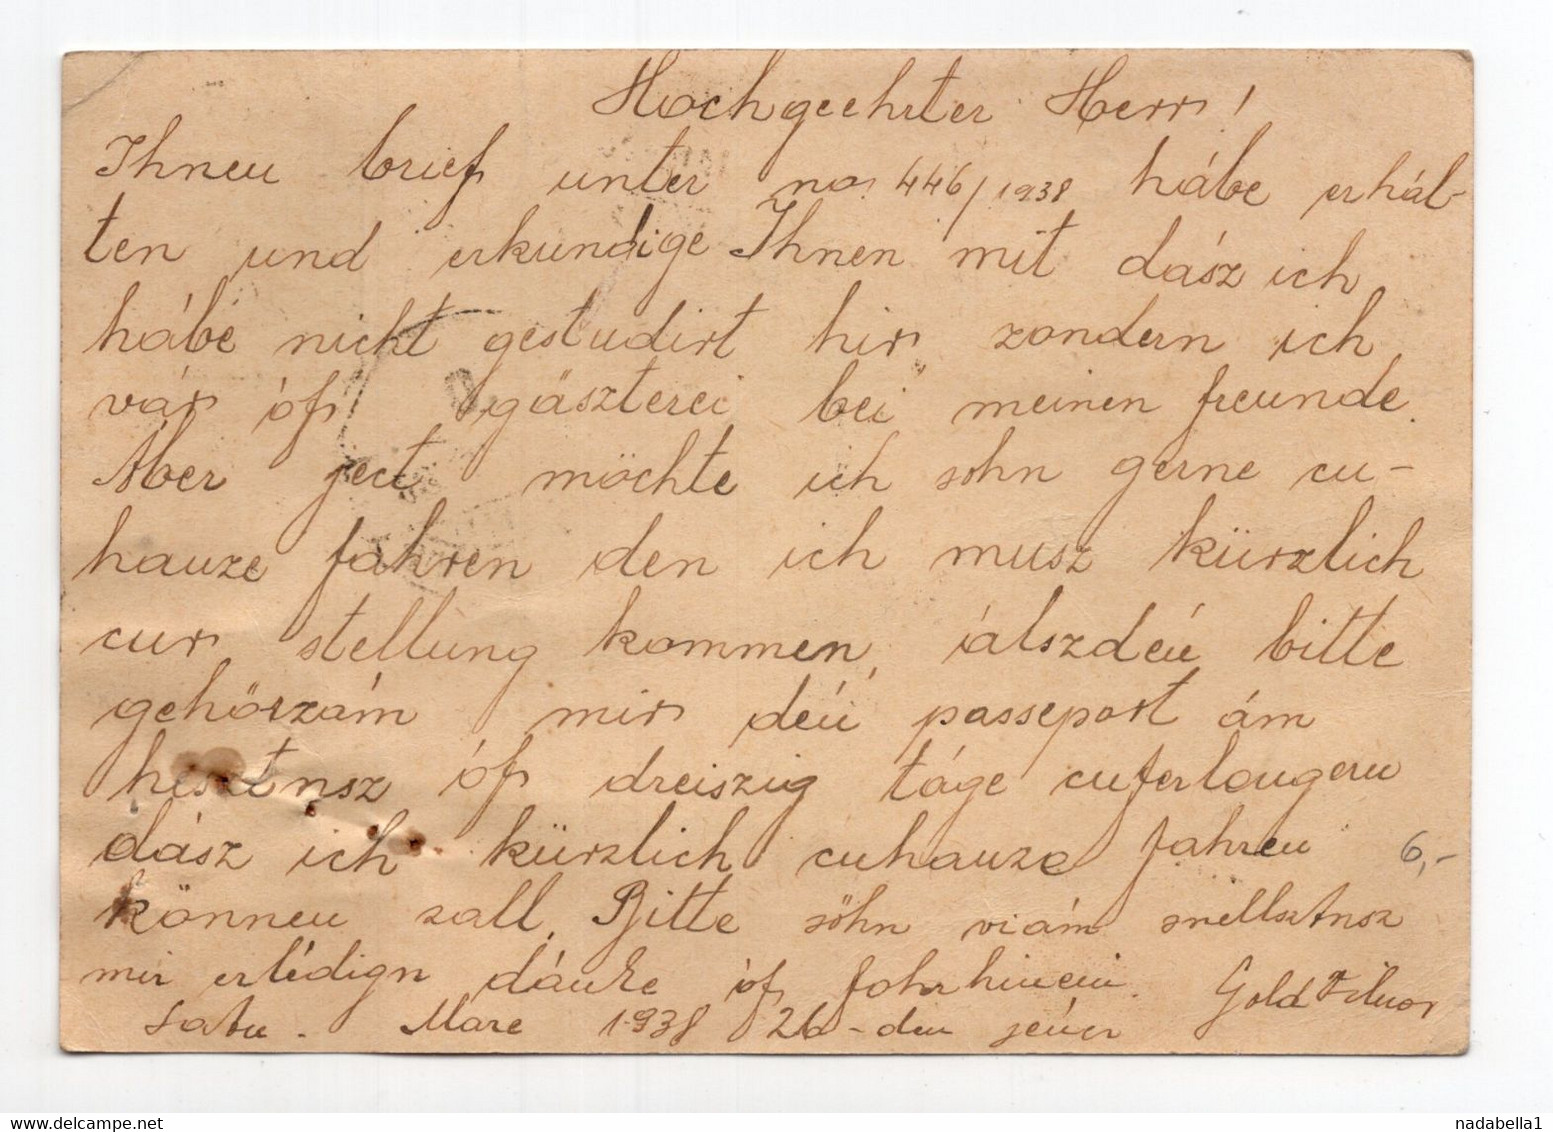 Hochgeehrter Herr!
Ihneu brief unter no. 446/1938 hábe erháb-
ten und erkundige Ihnen mit dász ich
hábe nicht gestudirt hir zondern ich
vár óf gäszterei bei meinen freunde.
Aber ject möchte ich sohn gerne cu-
hauze fahren den ich musz kürzlich
cur stellung kommen, álszdéu bitte
gehörzám mir déú passeport ám
óf dreiszig táge cuferlougeru
dász ich kürzlich cuhauze fahreu 6,-
könneu zall. Bitte söhn viám snellsztnsz
mir erlédign dáuke óf fohrhinein. Gold
Satu. Mare 1938 26-den jéner
nadabella1